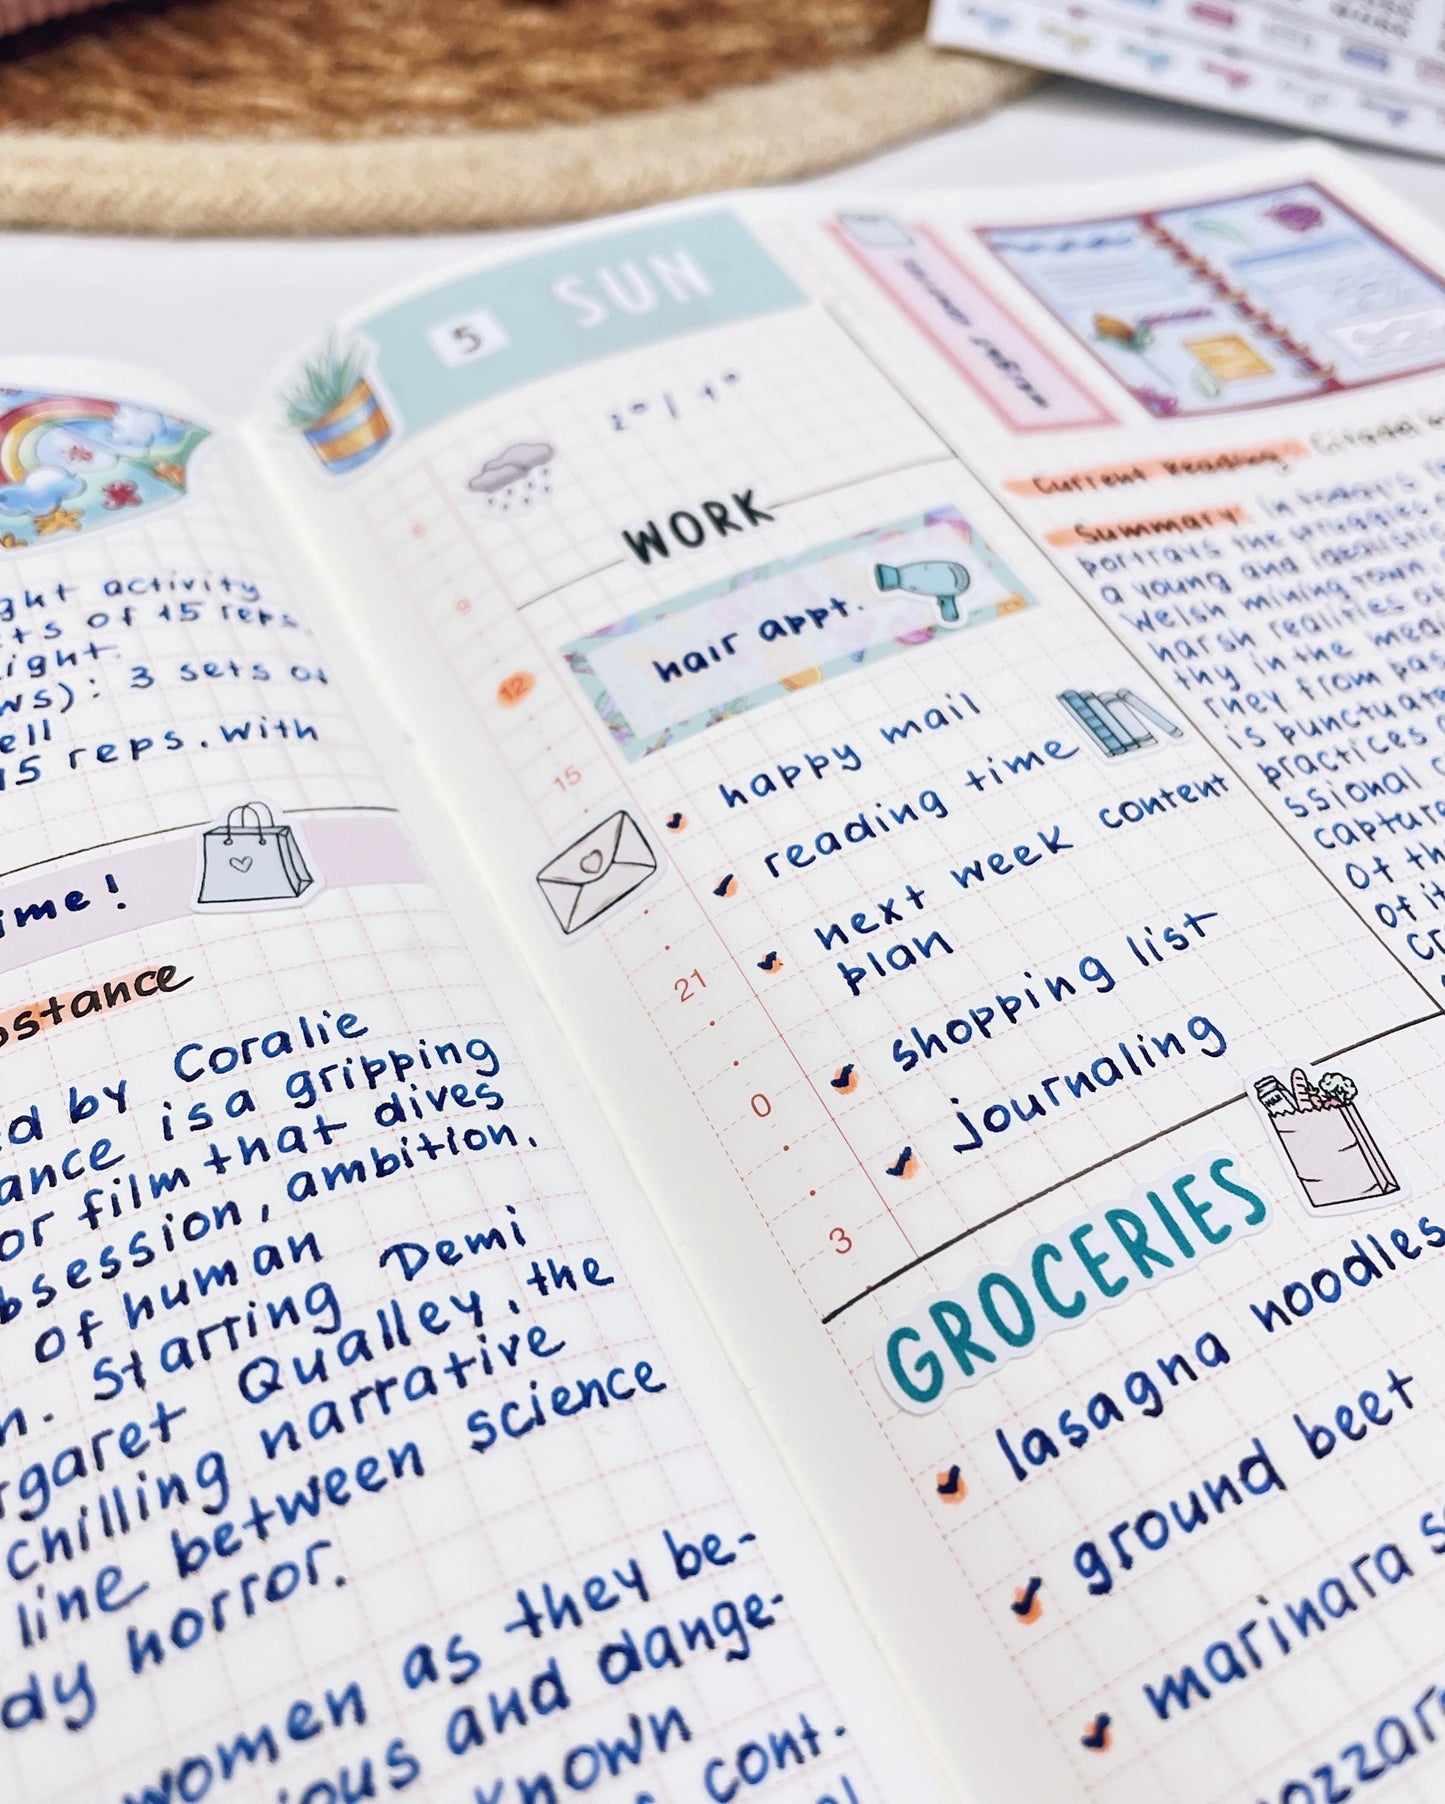 ght activity
ts of 15 reps.
ight.
ws): 3 sets of
ell
15 reps. with
ime!
bstance
ed by Coralie
ance is a gripping
or film that dives
bsession, ambition,
of human
n. Starring Demi
rgaret Qualley, the
chilling narrative
line between science
dy horror.
women as they be-
ious and dange-
known
cont.
5 SUN
WORK
hair appt.
12
15
21
0
3
happy mail
reading time
next week content
plan
shopping list
journaling
GROCERIES
lasagna noodles
ground beet
marinara s
ozzar
Current Reading: Citadel
Summary: In today's
portrays the struggles
a young and idealistic
Welsh mining town.
harsh realities
thy in the medi
rney from pas
is punctuate
practices
ssional
capture
of th
of it
cr